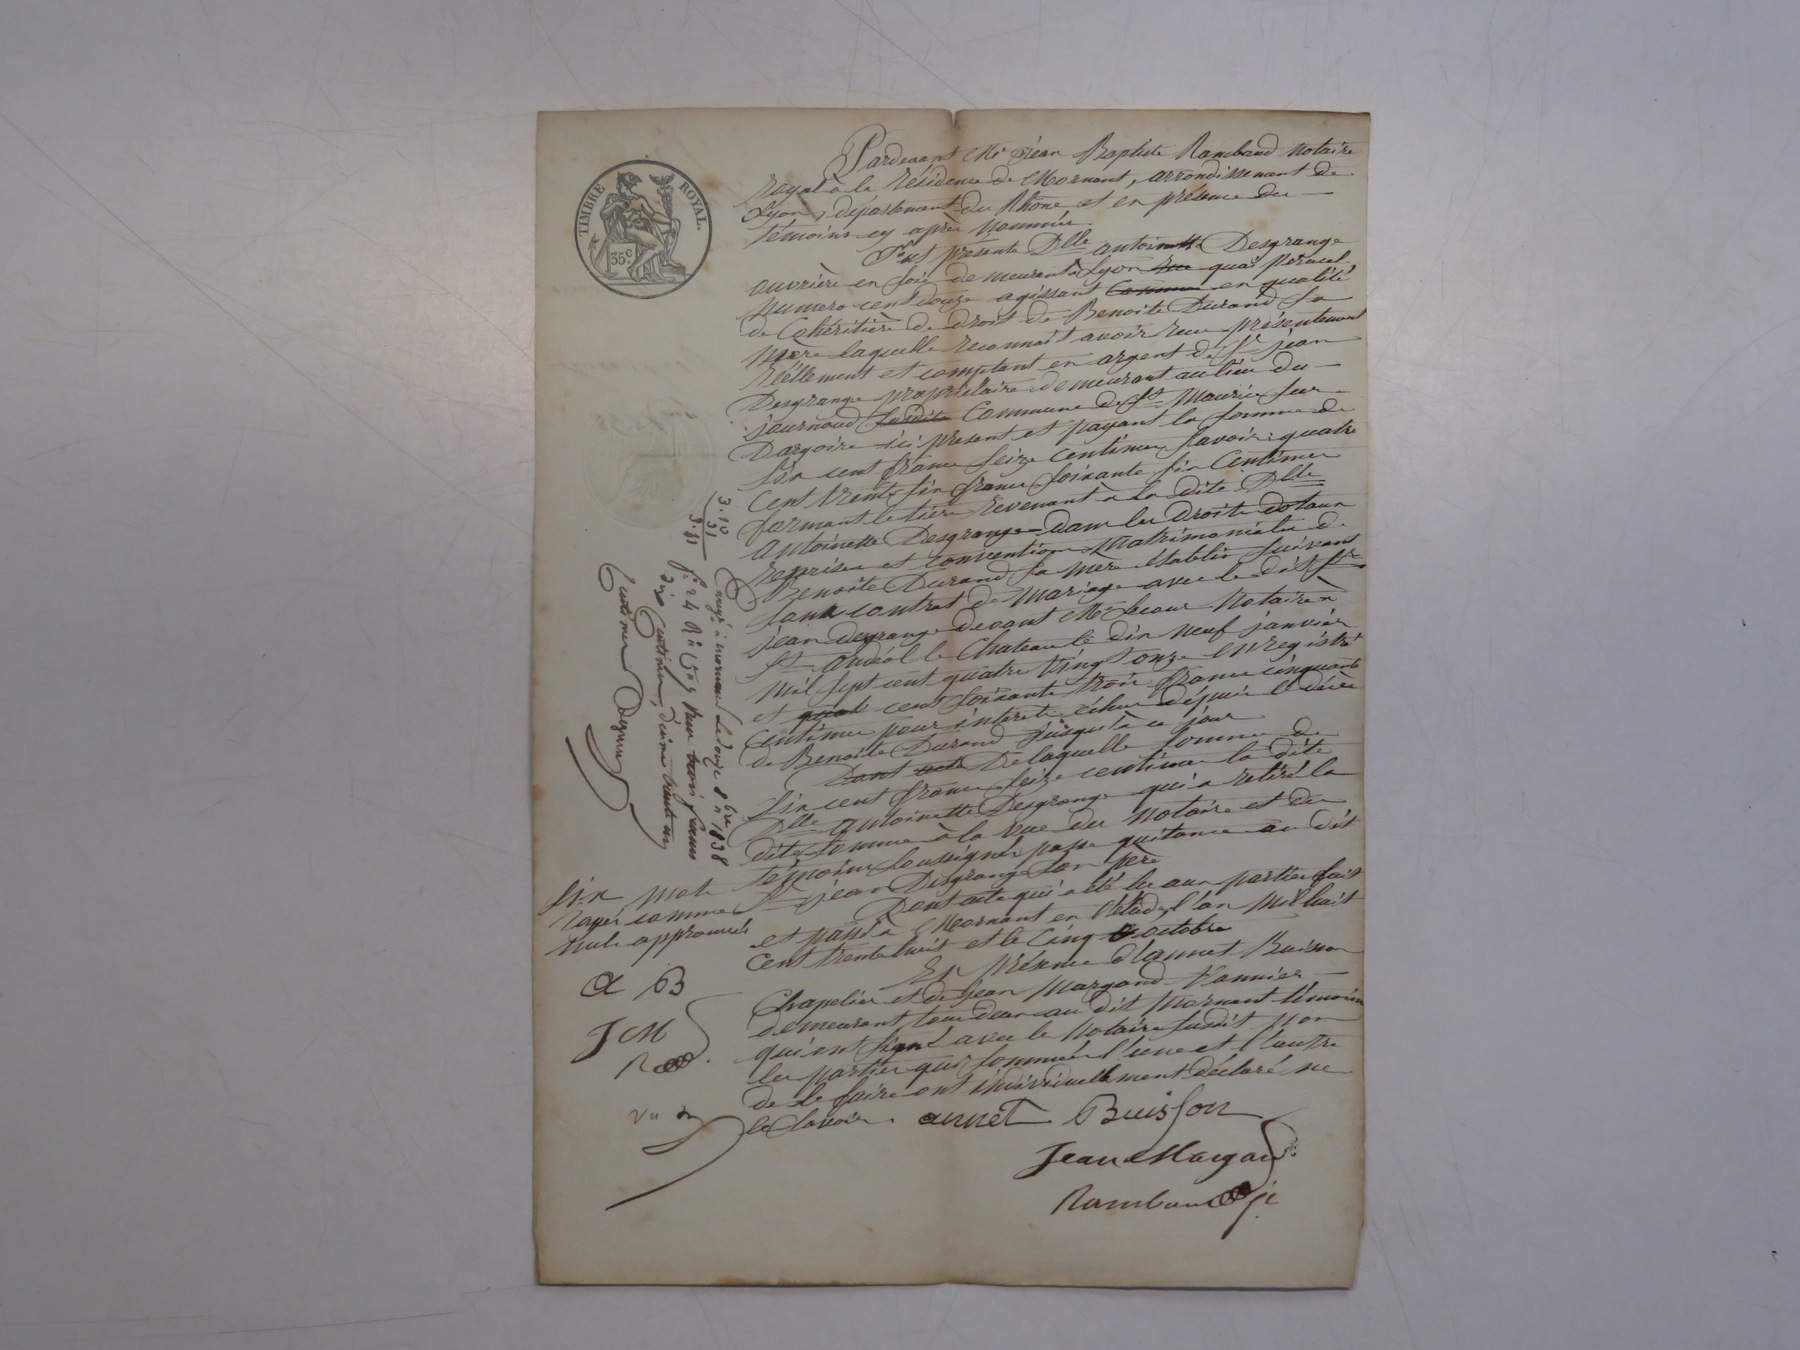 TIMBRE ROYAL.
35.c
Pardevant Me jean Baptiste Rambaud notaire
royal à la résidence de Mornant, arrondissement de
Lyon, département du Rhône et en présence des
témoins cy après nommés
Fut présente Dlle antoinette Desgrange
ouvrière en soie demeurant à Lyon rue quai
numero cent douze agissant comme en qualité
de Cohéritière de droit de Benoite Durand sa
mère laquelle reconnait avoir reçu présentement
réellement et comptant en argent de Sr jean
Desgrange propriétaire demeurant au lieu du
journoud susdite Commune de St Maurice sur
Dargoire ici présent et payant la somme de
six cent francs seize centimes savoir: quatre
cent trente six francs soixante six centimes
formant le tiers revenant à la dite Dlle
antoinette Desgrange dans les droits dotaux
reprises et conventions matrimoniales de
Benoite Durand sa mère établis suivant
son contrat de mariage avec le dit Sr
jean desgrange devant Me notaire à
St andéol le Chateau le dix neuf janvier
mil sept cent quatre vingt onze enregistré
et quat cent soixante trois francs cinquante
centimes pour intérêts échus dépuis le décès
de Benoite Durand jusqu'à ce jour
Dont acte De laquelle somme de
six cent francs seize centimes la dite
Dlle antoinette Desgrange qui a retiré la
dite somme à la vue du notaire et des
témoins soussignés passe quitance au dit
Sr jean Desgrange son père
Dont acte qui a été lu aux parties fait
et passé à Mornant en l'étude l'an mil huit
cent trente huit et le cinq octobre
En présence d'annet Buisson
Chapelier et de jean Margand vannier
demeurant tous deux au dit Mornant témoins
qui ont signé avec le notaire susdit non
les parties qui sommées l'une et l'autre
de le faire ont individuellement déclaré ne
le savoir.
annet Buisson
Jean Margand
Rambaud
3.10
31
3.41
Enregé à mornant le douze 8bre 1838
fo 24 Ro Reçu trois francs
dix centimes, décime trente un
centimes
six mots
rayés comme
nuls approuvés
a B
J M
R